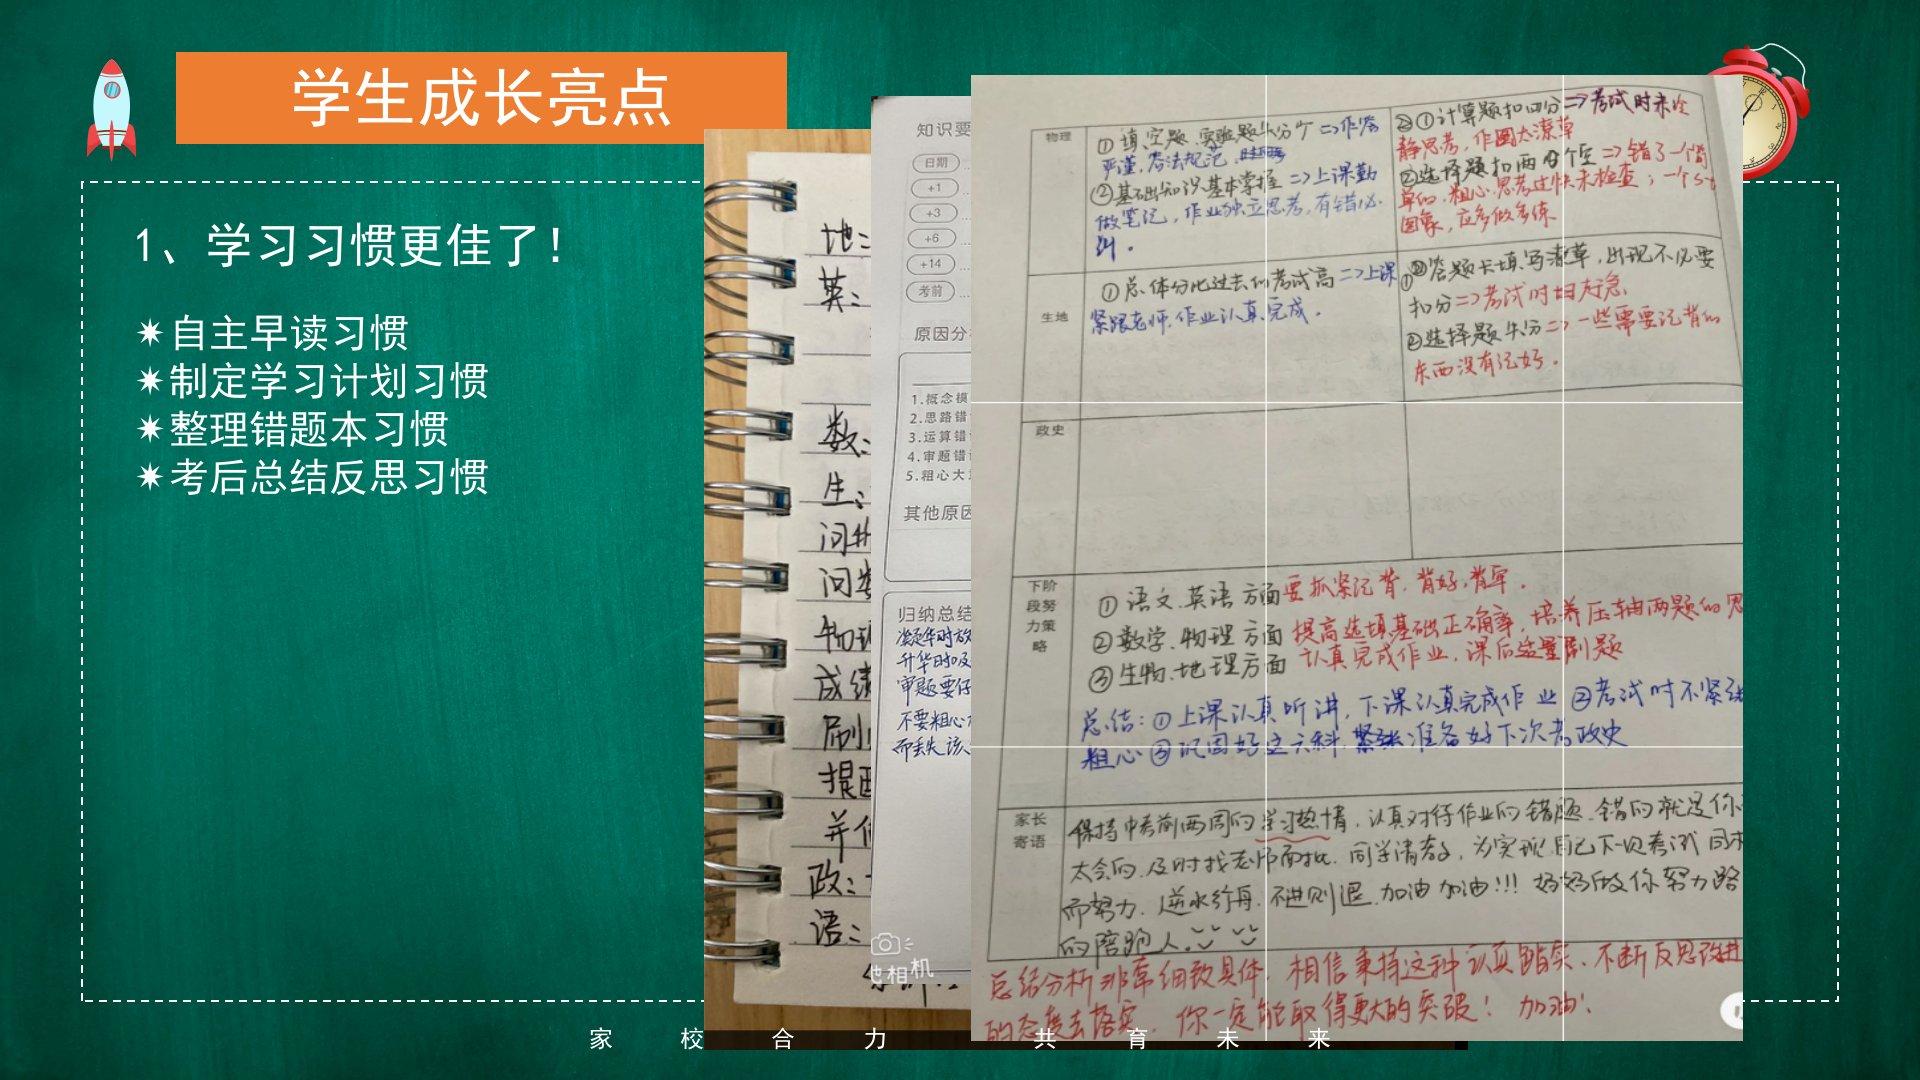 学生成长亮点
1、学习习惯更佳了！
✷自主早读习惯
✷制定学习计划习惯
✷整理错题本习惯
✷考后总结反思习惯
地：
英：
数：
生：
问
问
物
成绩
刷
提
并
政：
语：
知识要
日期
+1
+3
+6
+14
考前
原因分
1.概念模
2.思路错
3.运算错
4.审题错
5.粗心大
其他原因
归纳总结
凝华时放
升华时
审题要仔
不要粗心
而丢失该
相机
物理
①填空题、实验题失分少⇒作答
严谨，答法规范
②基础知识基本掌握⇒上课勤
做笔记，作业独立思考，有错必
纠。
①计算题扣四分⇒考试时未冷
静思考，作图太潦草
②选择题扣两个⇒错了一个简
单的，粗心，思考过快未检查；一个s-t
图象，应多做多练
生地
①总体分比过去的考试高⇒上课
紧跟老师，作业认真完成。
①答题卡填写潦草，出现不必要
扣分⇒考试时太着急
②选择题失分⇒一些需要记背的
东西没有记好。
政史
下阶
段努
力策
略
①语文、英语方面要抓紧记背，背好，背牢。
②数学、物理方面提高选填基础正确率，培养压轴两题的思
③生物、地理方面认真完成作业，课后适量刷题
总结：①上课认真听讲，下课认真完成作业②考试时不紧张
粗心③巩固好这六科，准备好下次考政史
家长
寄语
保持中考前两周的学习热情，认真对待作业的错题，错的就是你
太会的，及时找老师面批，同学请教，为实现自己下一次考试目标
而努力，逆水行舟，不进则退，加油加油!!! 妈妈做你努力路
的陪跑人。
总结分析非常细致具体，相信秉持这种认真踏实、不断反思改进
的态度去落实，你一定能取得更大的突破！加油！
家校合力 共育未来